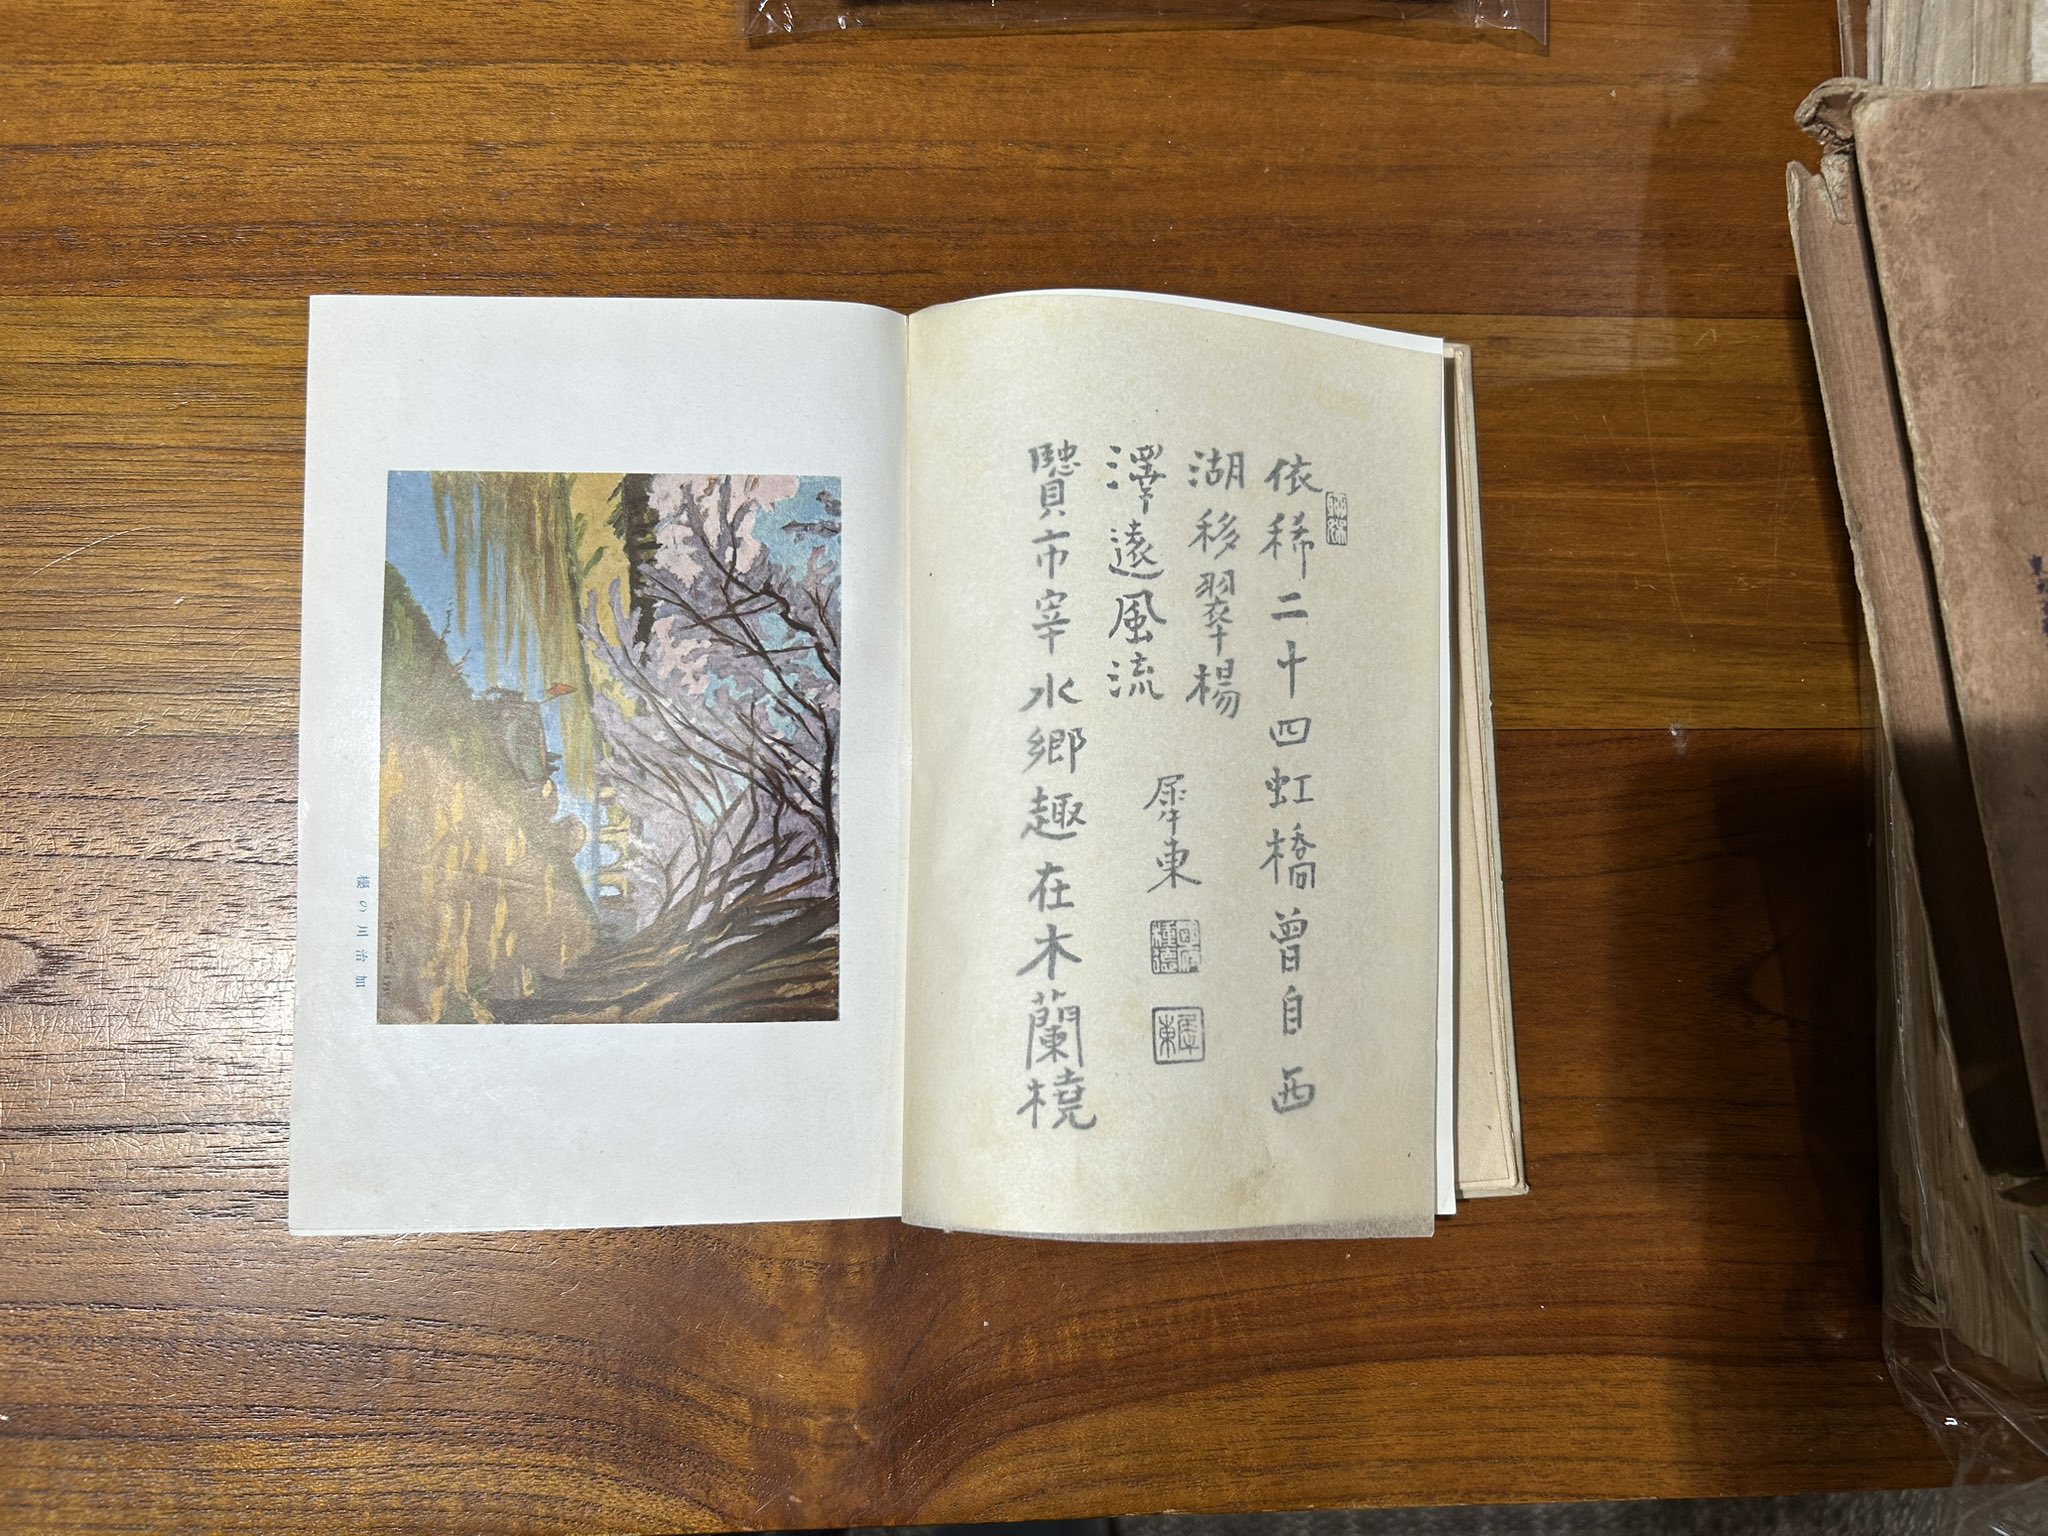 依稀二十四虹橋曾自西
湖移翠楊
澤遠風流
賢市宰水郷趣在木蘭橈
犀東
犀東
櫻の川治加